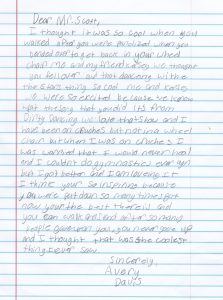 Dear Mr. Scott,
I thought it was so cool when you
walked and you were paralized when you
bended over to get back in your wheel
chair me and my friend Kasey we thought
you fell over but that dancing with the
the stars thing so cool me and Kasey
were so excited because we know
that the song that you did from
Dirty Dancing we love that show and I
have been on cruches but not in a wheel
chair but when I was on cruches I
was worried that I would never heal
and I couldnt do gymnastics ever again
but I got better and Im loving it
I think your so inspiring because
you were put down so many times but
now your the best there is and
you can walk and and after so many
people gave up on you, you never gave up
and I thought that was the coolest
thing I ever saw
Sincerely,
Avery
Davis